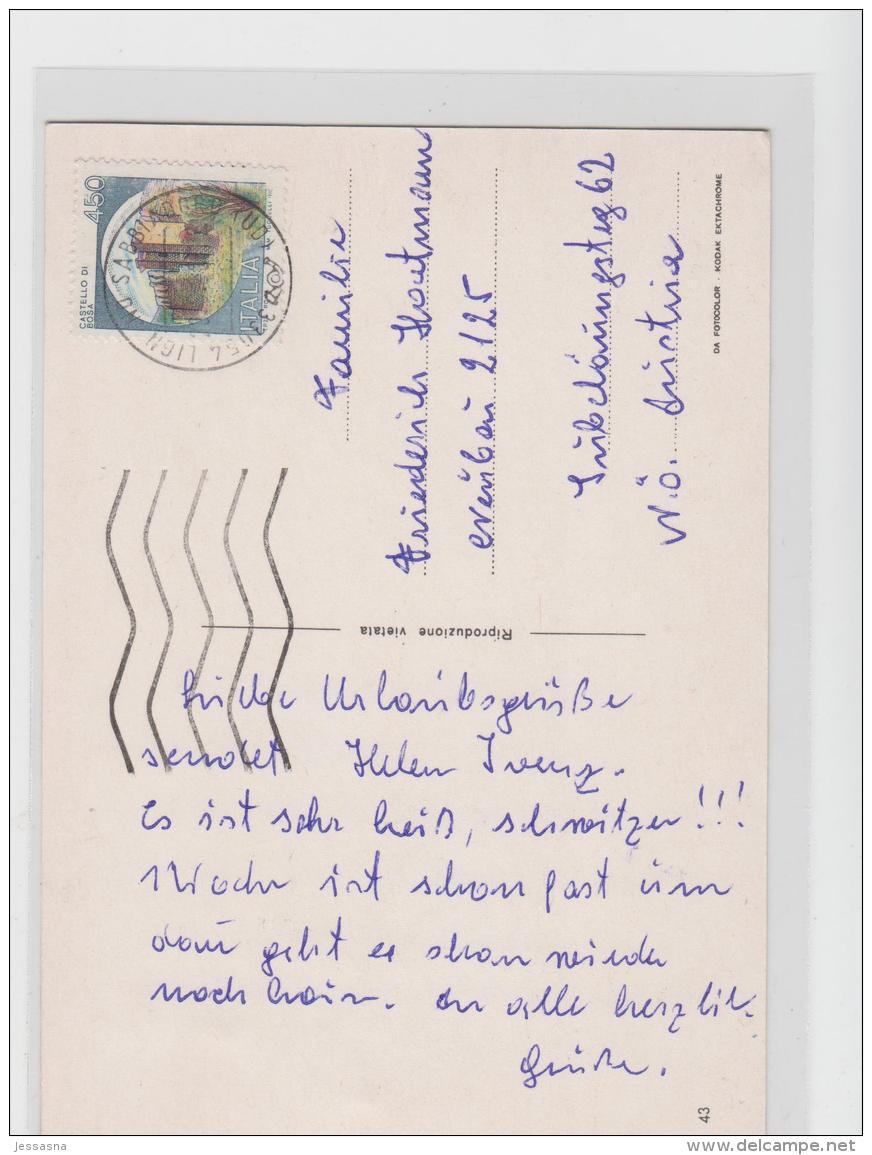 450
CASTELLO DI
BOSA
ITALIA
33054 LIGN SABBIAD UD
Familie
Friederich Hartmann
Neubau 2125
Siedlungsteg 62
N.Ö. Austria
DA FOTOCOLOR - KODAK EKTACHROME
Riproduzione vietata
Liebe Urlaubsgrüße
sendet Helen
Es ist sehr heiß, schwitzen!!!
1 Woche ist schon fast um
dan geht es schon wieder
nach haim. an alle herzlich.
Grüße.
43
jessasna
www.delcampe.net